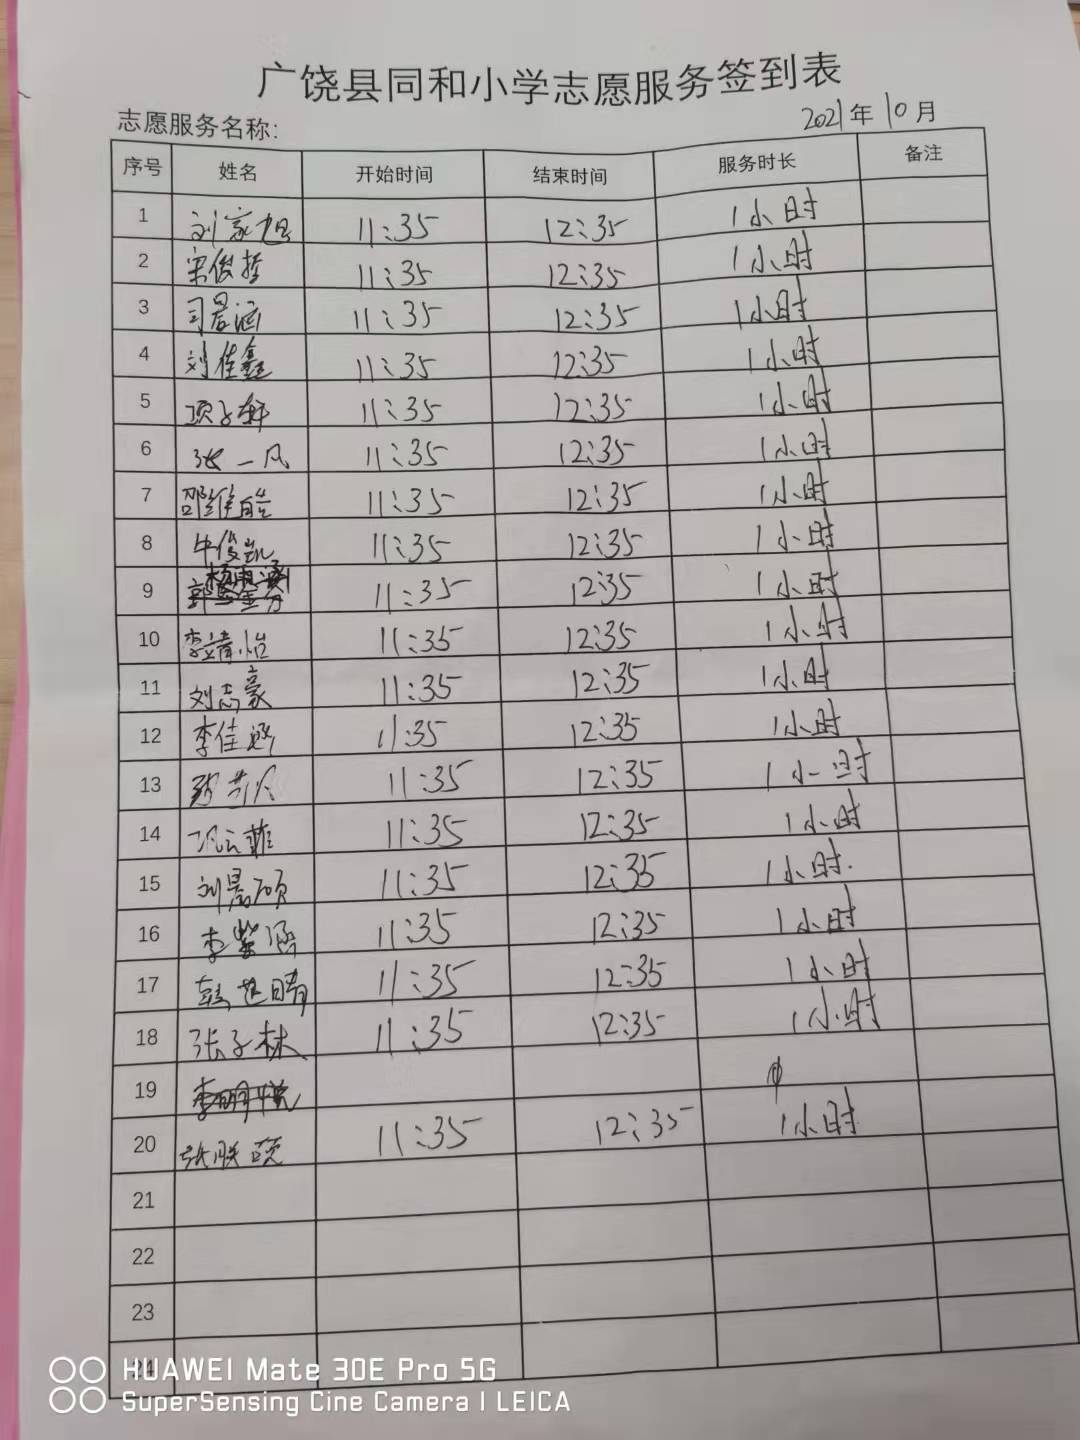 广饶县同和小学志愿服务签到表
志愿服务名称: 2021年10月
序号 姓名 开始时间 结束时间 服务时长 备注
1 刘家旭 11:35 12:35 1小时
2 宋俊哲 11:35 12:35 1小时
3 司晨涵 11:35 12:35 1小时
4 刘佳鑫 11:35 12:35 1小时
5 项子轩 11:35 12:35 1小时
6 张一凡 11:35 12:35 1小时
7 邵维皓 11:35 12:35 1小时
8 牛俊凯 11:35 12:35 1小时
9 11:35 12:35 1小时
10 李靖怡 11:35 12:35 1小时
11 刘志豪 11:35 12:35 1小时
12 李佳 11:35 12:35 1小时
13 11:35 12:35 1小时
14 云菲 11:35 12:35 1小时
15 刘晨硕 11:35 12:35 1小时
16 李紫涵 11:35 12:35 1小时
17 韩 晴 11:35 12:35 1小时
18 张子林 11:35 12:35 1小时
19
20 张 硕 11:35 12:35 1小时
21
22
23
24
HUAWEI Mate 30E Pro 5G
SuperSensing Cine Camera | LEICA